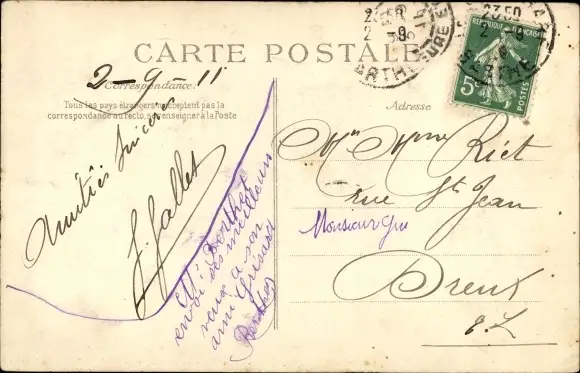 CARTE POSTALE
2-9-11
Correspondance.
Tous les pays étrangers n'acceptent pas la
correspondance au recto, se renseigner à la Poste
Amitiés sincères
J. Gallet
Mr Berthet
envoi ses meilleurs
veux a son
ami Grisard
Berthet
Adresse
Mr Mme Riet
rue St Jean
Monsieur
Dreux
E.L
RÉPUBLIQUE FRANÇAISE
5c
POSTES
23 50
2 - 9